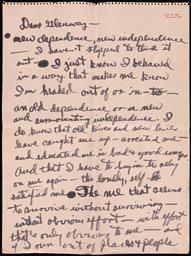 Dear Glenway —
new dependence, new independence
I haven't stopped to think it
out — I just know I behaved
in a way that makes me know
I'm headed out of or in-to —
an old dependence or a new
and independence. I
do know that old lives and new lives
have caught me up — and me
and educated me in bad & good ways
And that I have to begin to rely
on me again — the lonely, self-
me — the me that seems
to survive without surviving —
without obvious effort — with effort
that's only obvious to me — and
I run out of places & people